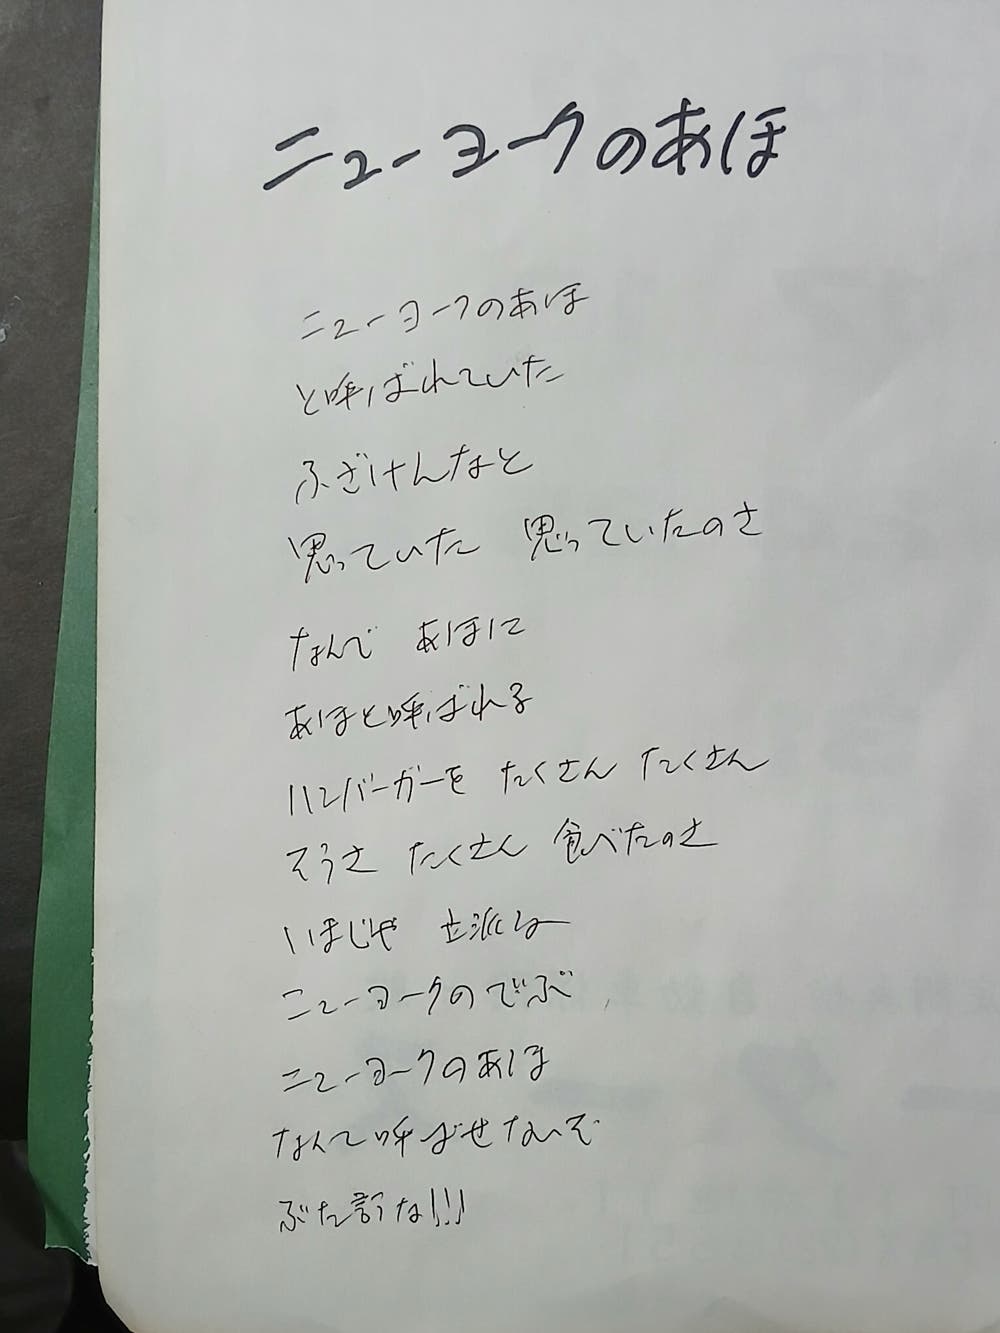 ニューヨークのあほ
ニューヨークのあほ
と呼ばれていた
ふざけんなと
思っていた 思っていたのさ
なんで あほに
あほと呼ばれる
ハンバーガーを たくさん たくさん
そうさ たくさん 食べたのさ
いまじゃ 立派な
ニューヨークのでぶ
ニューヨークのあほ
なんて呼ばせないぞ
ぶた野な!!!